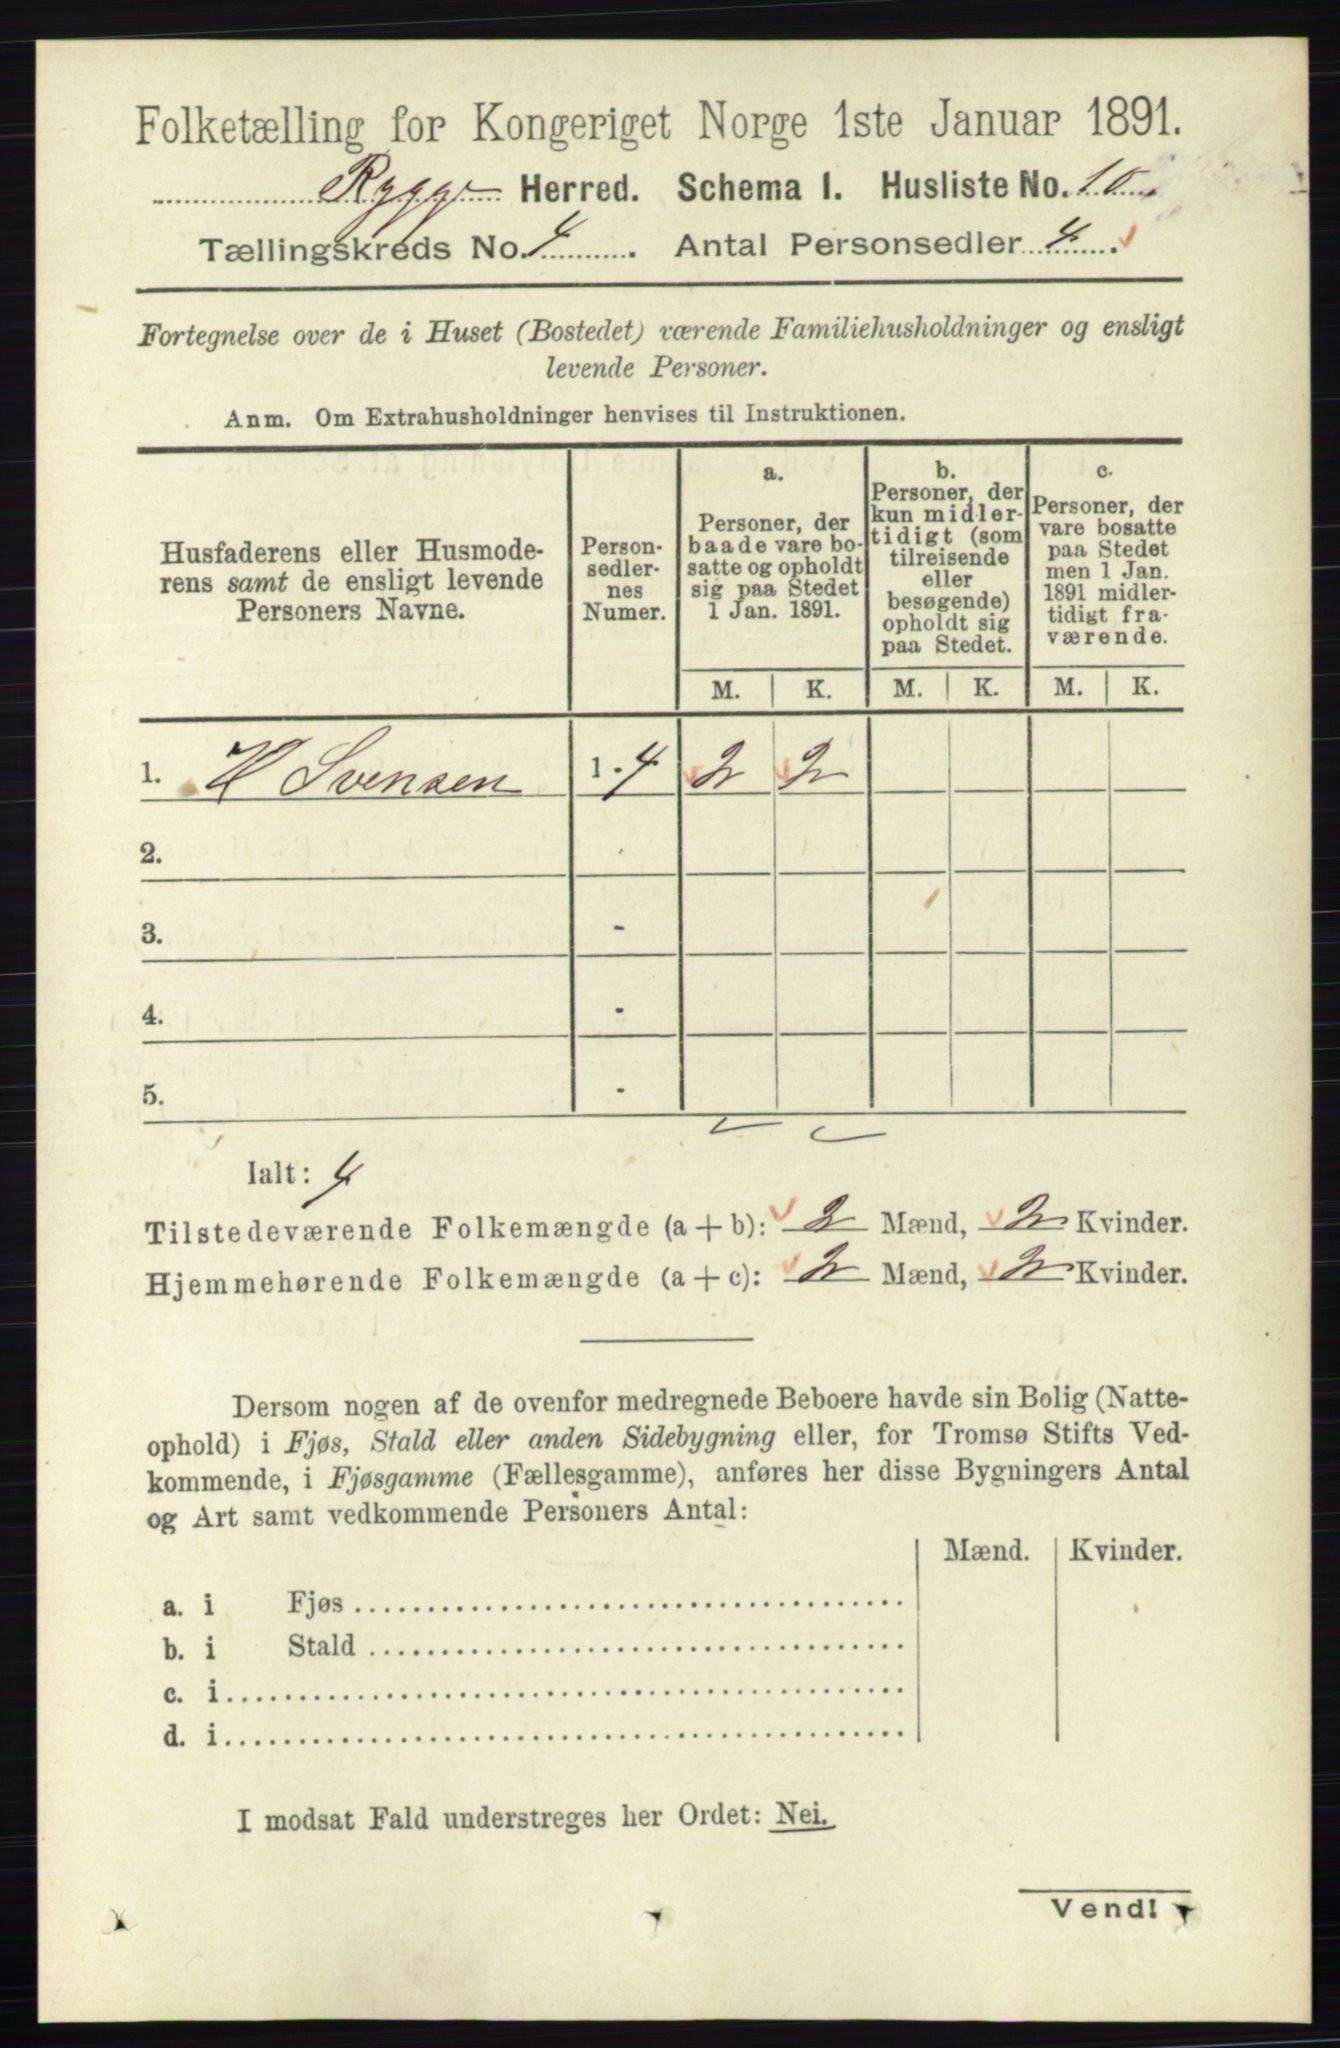 Folketælling for Kongeriget Norge 1ste Januar 1891.
Rygge Herred. Schema I. Husliste No. 10
Tællingskreds No. 4. Antal Personsedler 4.
Fortegnelse over de i Huset (Bostedet) værende Familiehusholdninger og ensligt
levende Personer.
Anm. Om Extrahusholdninger henvises til Instruktionen.
Husfaderens eller Husmode-
rens samt de ensligt levende
Personers Navne.
Person-
sedler-
nes
Numer.
a.
Personer, der
baade vare bo-
satte og opholdt
sig paa Stedet
1 Jan. 1891.
b.
Personer, der
kun midler-
tidigt (som
tilreisende
eller
besøgende)
opholdt sig
paa Stedet.
c.
Personer, der
vare bosatte
paa Stedet
men 1 Jan.
1891 midler-
tidigt fra-
værende.
M. K. M. K. M. K.
1. H Svensen 1 - 4 2 2
2.
3. -
4. -
5. -
Ialt: 4
Tilstedeværende Folkemængde (a + b): 2 Mænd, 2 Kvinder.
Hjemmehørende Folkemængde (a + c): 2 Mænd, 2 Kvinder.
Dersom nogen af de ovenfor medregnede Beboere havde sin Bolig (Natte-
ophold) i Fjøs, Stald eller anden Sidebygning eller, for Tromsø Stifts Ved-
kommende, i Fjøsgamme (Fællesgamme), anføres her disse Bygningers Antal
og Art samt vedkommende Personers Antal:
Mænd. Kvinder.
a. i Fjøs
b. i Stald
c. i
d. i
I modsat Fald understreges her Ordet: Nei.
Vend!